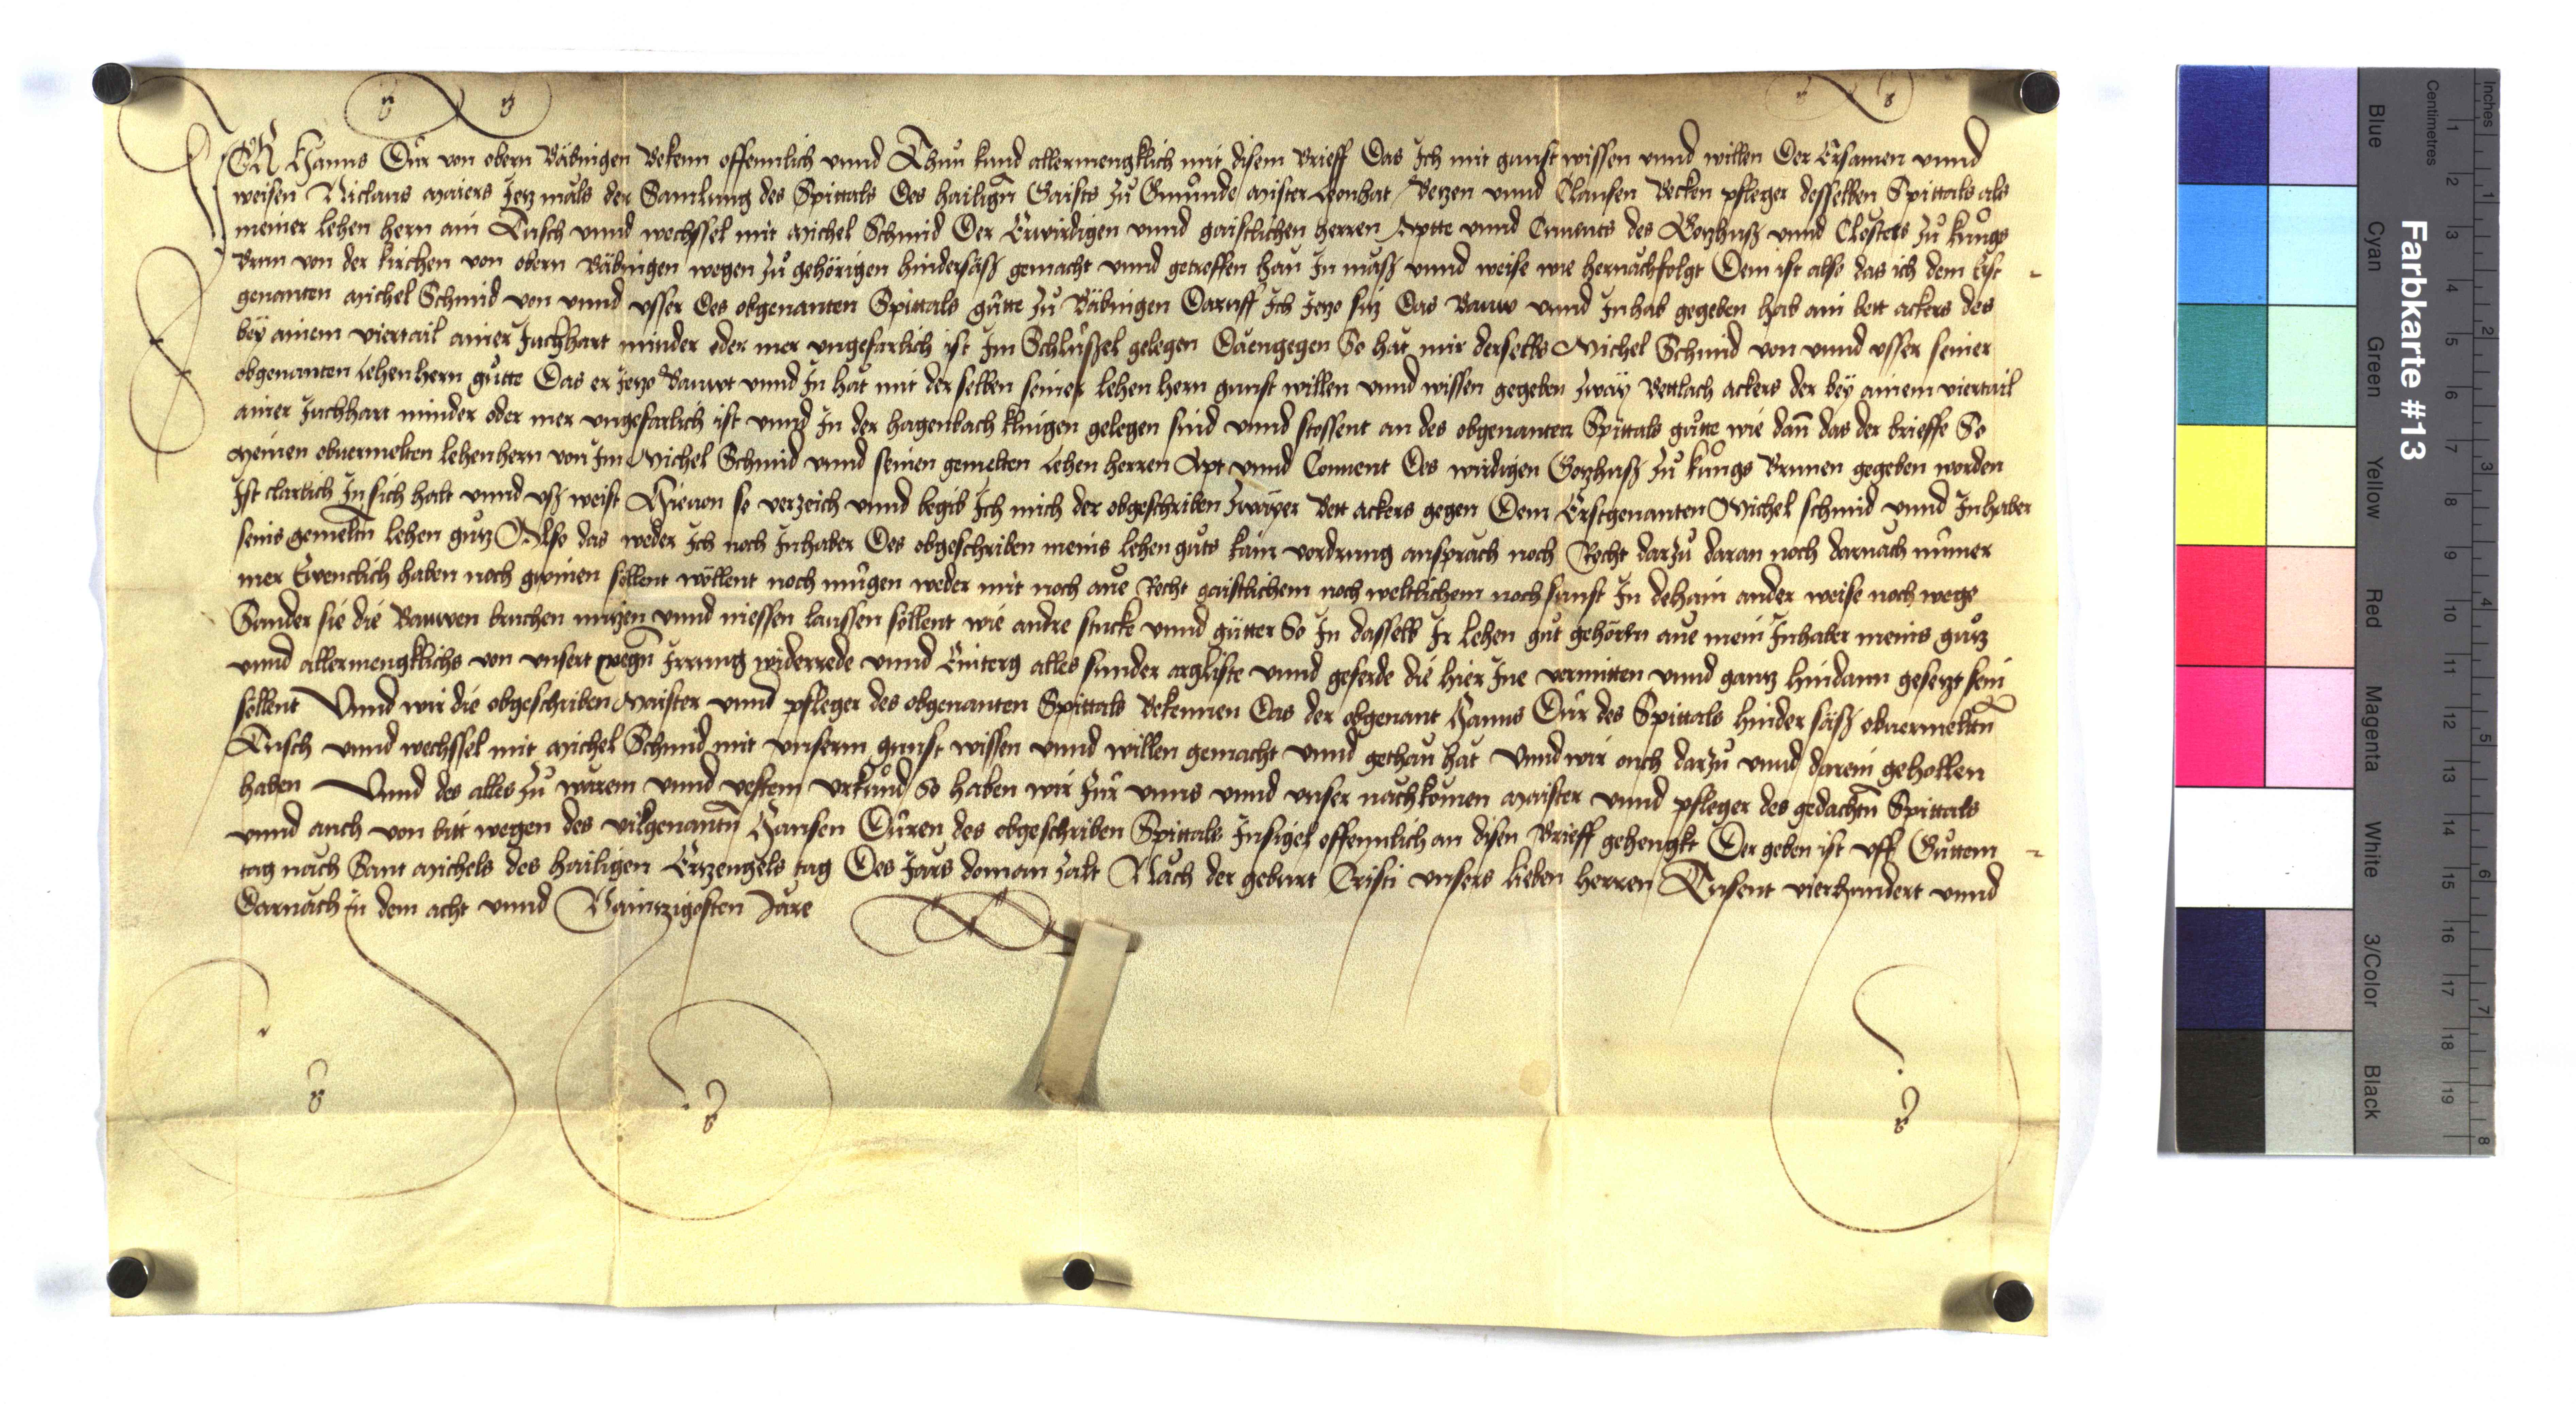 ICh Hanns Dür von obern Bäbingen Bekenn offennlich vnnd Thun kund allermengklich mit disem Brieff Das Ich mit gunst wissen vnnd willen Der Ersamen vnnd
weisen Niclaus maiers Jetz mals der Samlung des Spittals des hailigen Gaists Zů Gmünde maister Leonhat Betzen vnnd Clausen Becken pfleger desselben Spittals als
meiner lehen hern ain Tusch vnnd wechssel mit michel Schmid Der Erwirdigen vnnd gaistlichen herren Aptte vnnd Conuents des Gotzhuß vnnd Closters Zů kungs
Brun von der kirchen von obern Bäbingen wegen Zů gehörigen hindersäß gemacht vnnd getroffen hau In mauß vnnd weise wie hernachfolgt Dem ist also das ich dem Erst
genanten michel Schmid von vnnd vsser des obgenanten Spittals gůtte Zů Bäbingen Daruff Ich Jetzo sitz Das Bauw vnnd Inhab gegeben hab ain bett ackers des
bey ainem viertail ainer Juchhart minder oder mer vngefarlich ist Im Schlüßel gelegen Daengegen So hat mir derselb Michel Schmid von vnnd vsser seiner
obgenanten lehenhern gůtte Das er Jetzo Bauwt vnnd In hat mit der selben seiner lehen hern gunst willen vnnd wissen gegeben Zway Bettlach ackers der bey ainem viertail
ainer Juchhart minder oder mer vngefarlich ist vnnd In der hagenbach klingen gelegen sind vnnd stossent an des obgenanten Spittals gůtte wie dann das der brieffe So
meinen obuermelten lehenhern von Im Michel Schmid vnnd seinen gemelten lehen herren Apt vnnd Conuent Des wirdigen Gotzhuß Zů kungs Brunen gegeben worden
Ist clarlich In sich halt vnnd vß weist Hieuon so verzeich vnnd begib Ich mich der obgeschriben Zwayer Bett ackers gegen Dem Erstgenanten Michel schmid vnnd Inhaber
seins gemelten lehen gůtz Also das weder Ich noch Inhaber Des obgeschriben meins lehen gůts kain vordrung ansprach noch Recht darzů daran noch darnach nümer
mer Ewenclich haben noch gewinen söllent wöllent noch mügen weder mit noch one Recht gaistlichem noch weltlichem noch sunst In dehain ander weise noch wege
Sunder sie die Bauwen bruchen nutzen vnnd niessen laussen söllent wie andre stucke vnnd gütter So In dasselb Ir lehen gůt gehörtn one mein Inhaber meins gůtz
vnnd allermengklichs von vnsert wegen Irrung widerrede vnnd Eintrg alles sunder arglist vnnd geferde die hier Ine vermitten vnnd gantz hindann gesetzt sein
söllent Vnnd wir die obgeschriben Maister vnnd pfleger des obgenanten Spittals Bekennen Das der obgenant Hanns Dür des Spittals hinder säß obuermelten
Tusch vnnd wechssel mit michel Schmid mit vnserm gunst wissen vnnd willen gemacht vnnd gethan hat Vnnd wir ouch darzů vnnd darein gehollen
haben Vnnd des alles Zů warem vnnd vestem vrkund So haben wir Für vnns vnnd vnser nachkomen maister vnnd pfleger des gedachten Spittals
vnnd auch von bitt wegen des vilgenanten Hansen Düren des obgeschriben Spittals Insigel offennlich an disen Brieff gehengkt Der geben ist vff Guttem
tag nach Sant michels des hailigen Ertzengels tag Des Jars domon zalt Nach der geburt Cristi vnsers lieben herren Tusent vierhundert vnnd
Darnach in dem acht vnnd Naintzigosten Jare
Farbkarte #13
Blue
Cyan
Green
Yellow
Red
Magenta
White
3/Color
Black
Centimetres
1
2
3
4
5
6
7
8
9
10
11
12
13
14
15
16
17
18
19
Inches
1
2
3
4
5
6
7
8